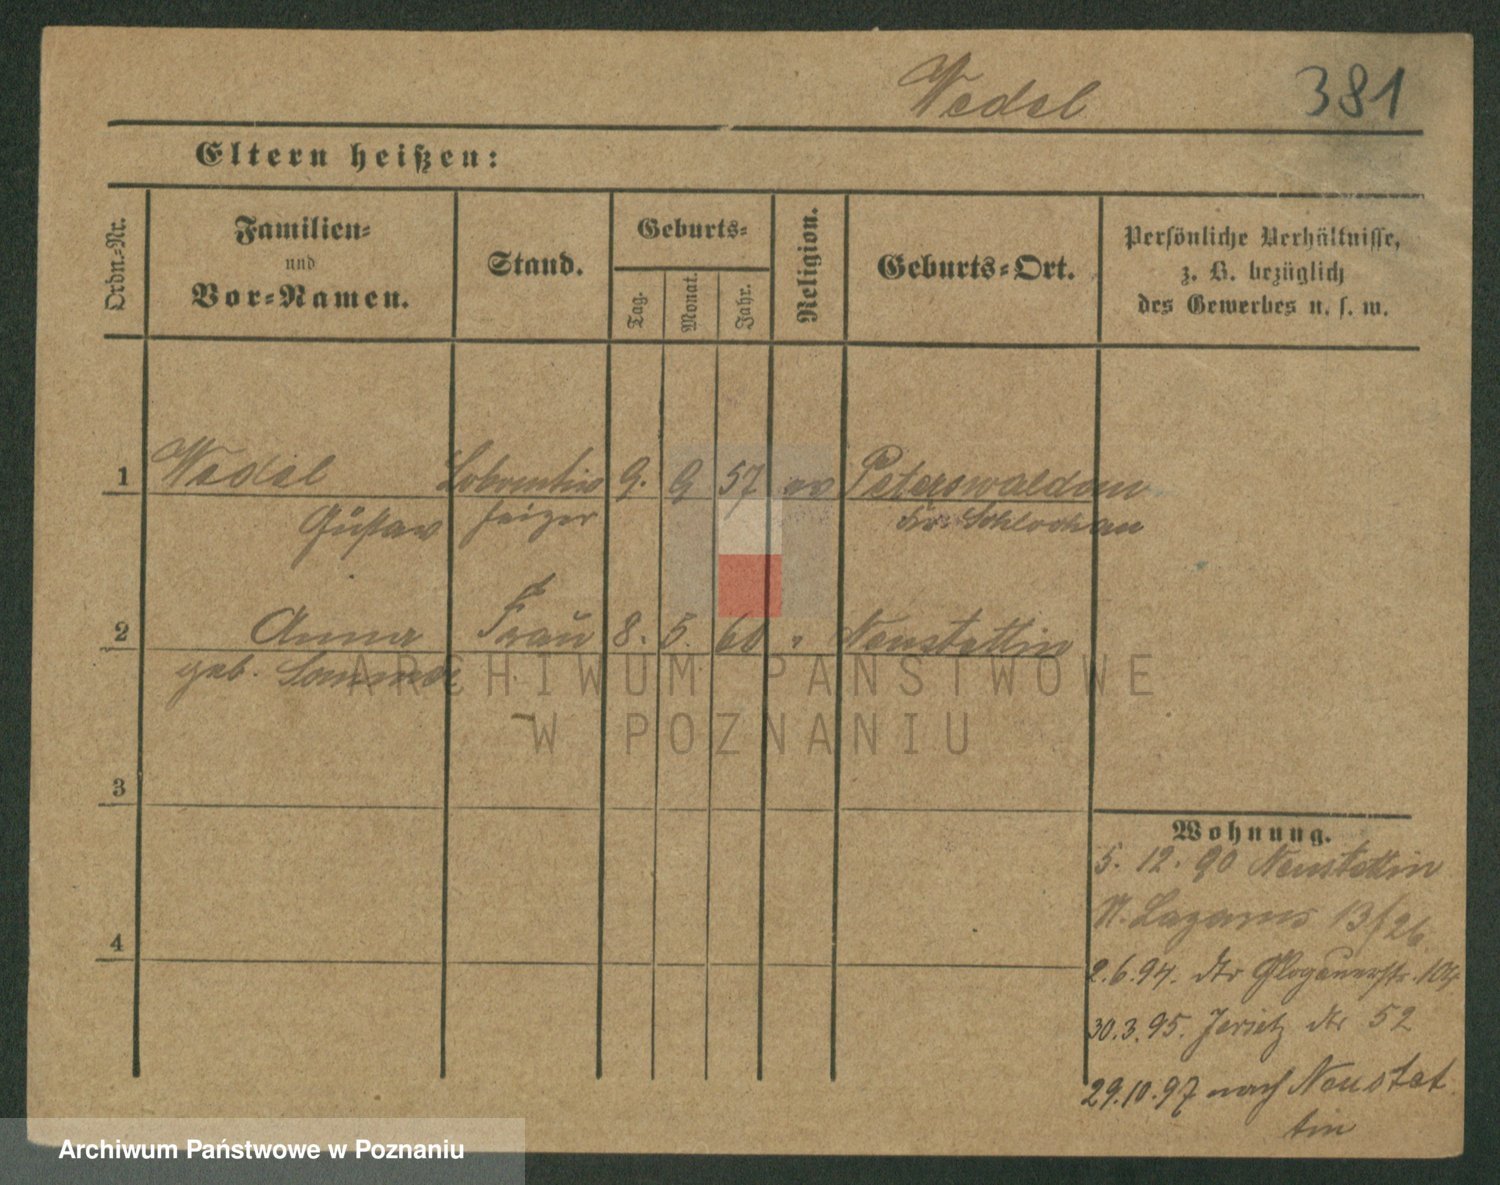 Wedel 381
Eltern heißen:
Ordn.-Nr.
Familien-
und
Vor-Namen.
Stand.
Geburts-
Tag.
Monat.
Jahr.
Religion.
Geburts-Ort.
Persönliche Verhältnisse,
z. B. bezüglich
des Gewerbes u. s. w.
1 Wedel 9. 9 57 ev Peterswaldau
Gustav heizer Kr. Schlochau
2 Anna Frau 8. 5. 60 " Neustettin
geb.
3
4
Wohnung.
5. 12. 90 Neustettin
St. Lazarus 13/26.
2.6.94. Glogauerstr.
30.3.95. Jersitz 52
29.10.97 nach Neustet
tin
ARCHIWUM PAŃSTWOWE
W POZNANIU
Archiwum Państwowe w Poznaniu